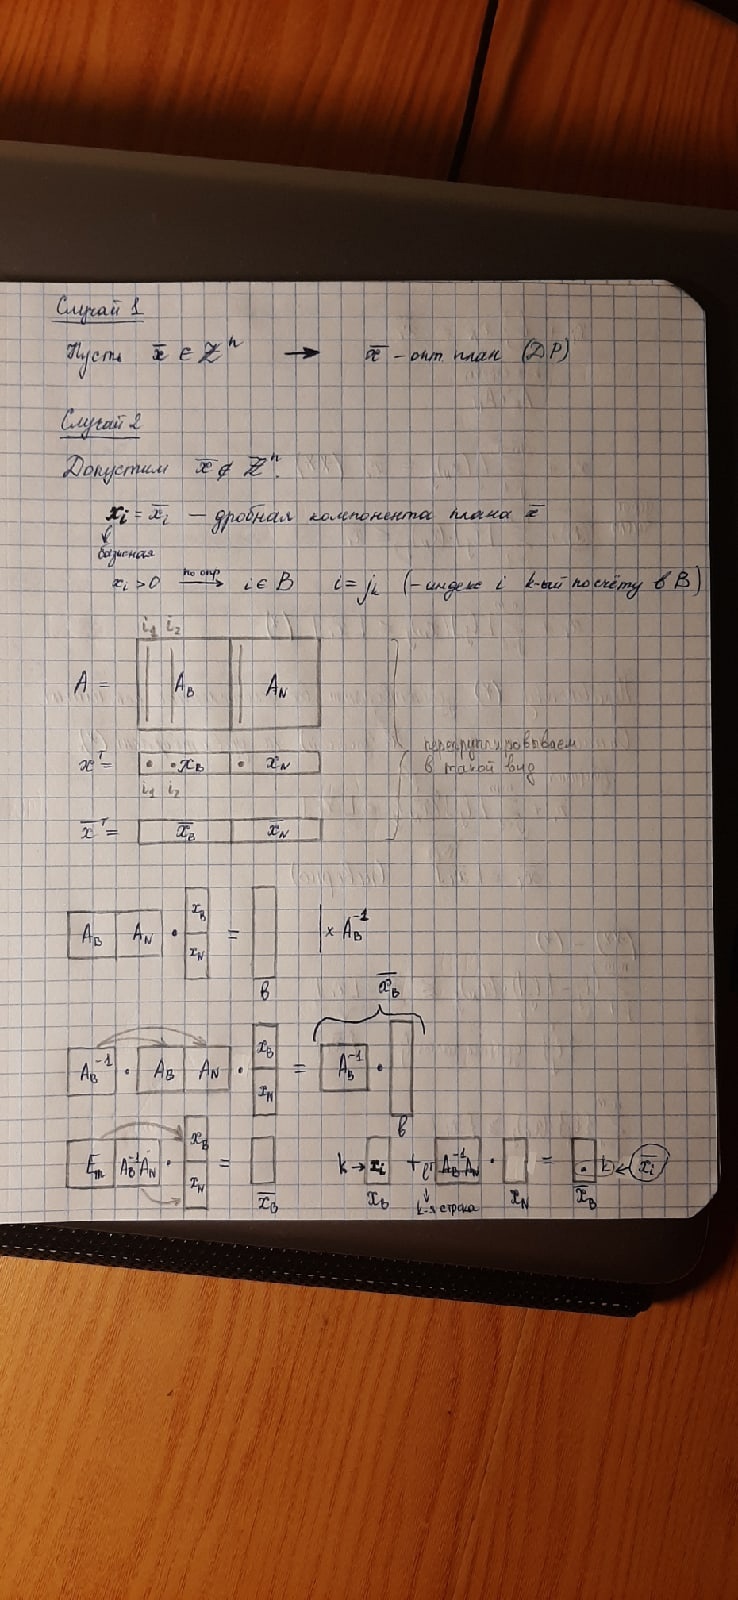 Случай 1
Пусть x̄ ∈ ℤⁿ → x̄ – опт. план (ДР)
Случай 2
Допустим x̄ ∉ ℤⁿ.
xᵢ = x̄ᵢ – дробная компонента плана x̄
базисная
xᵢ > 0 по опр → i ∈ B i = jₖ (– индекс i k-ый по счёту в B)
i₁ i₂
A = A_B A_N
xᵀ = x_B x_N
i₁ i₂
перегруппировываем
в такой вид
x̄ᵀ = x̄_B x̄_N
A_B A_N · x_B x_N = b | × A_B⁻¹
x̄_B
A_B⁻¹ · A_B A_N · x_B x_N = A_B⁻¹ · b
E_m A_B⁻¹A_N · x_B x_N = x̄_B
k → xᵢ + A_B⁻¹A_N · = k ← x̄ᵢ
x_B k-я строка x_N x̄_B